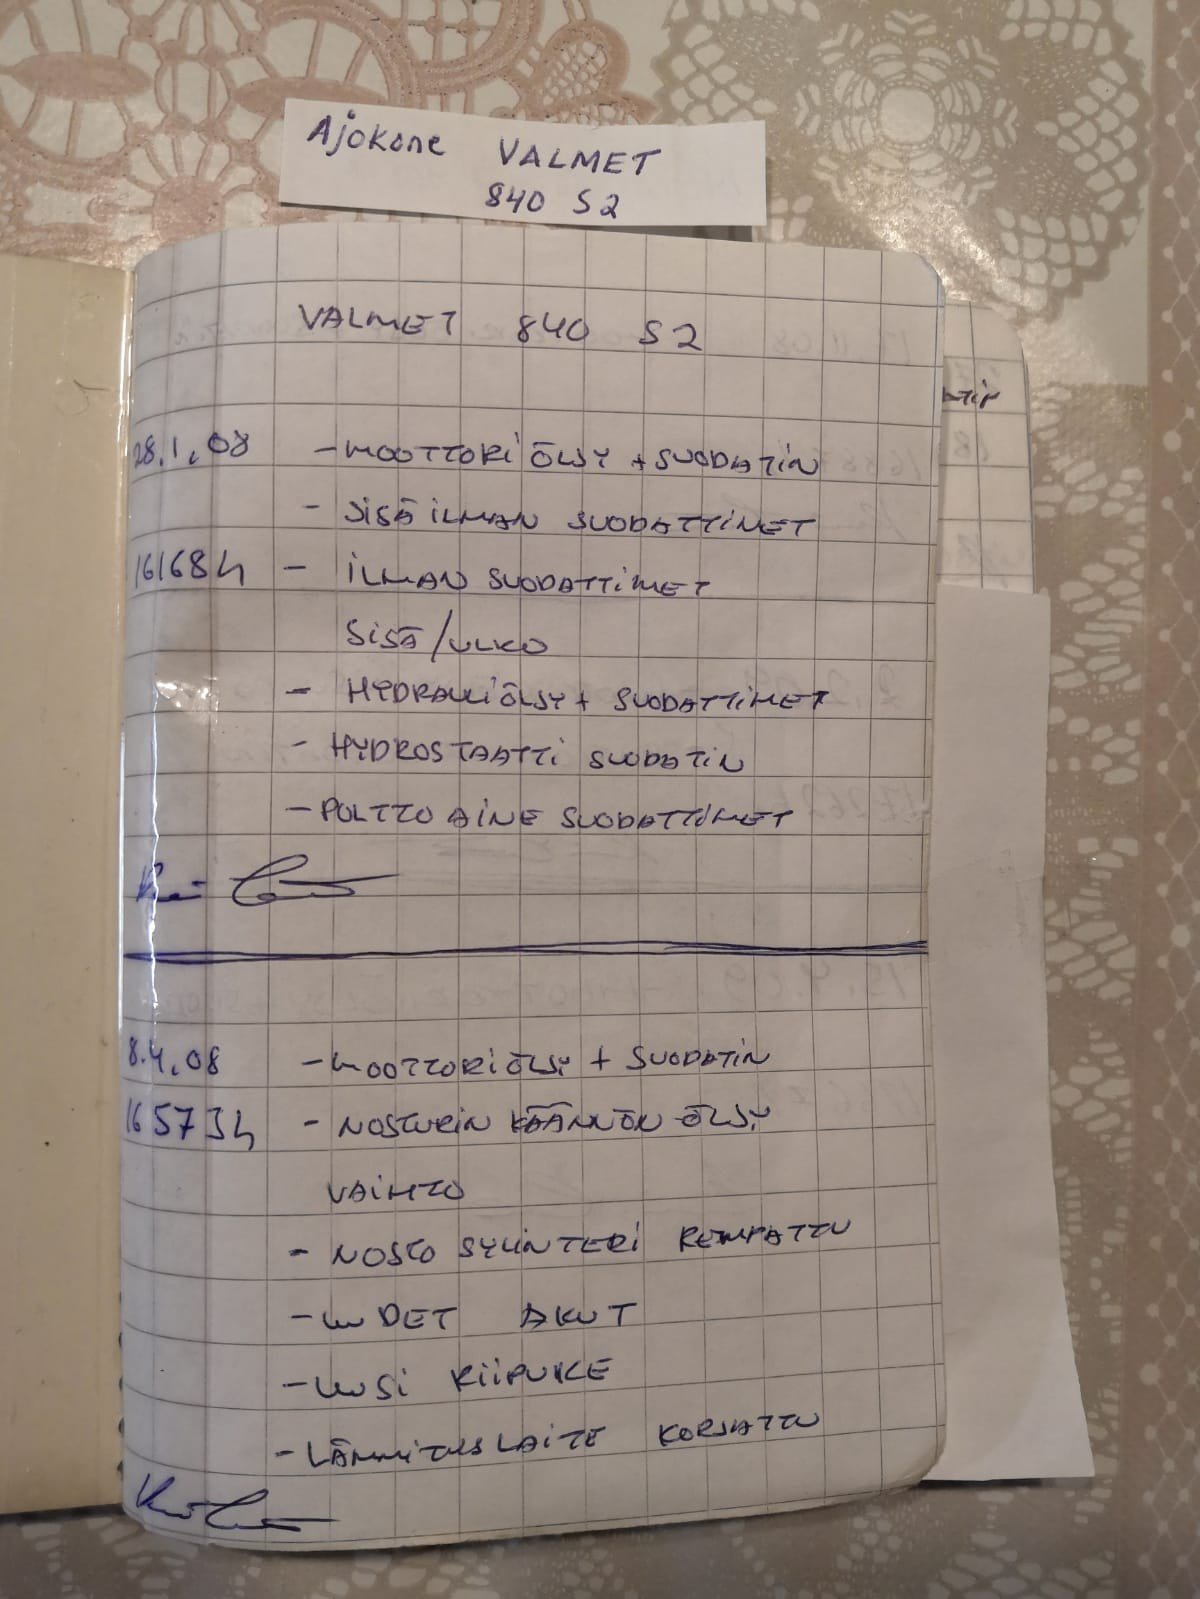 Ajokone VALMET
840 S2
VALMET 840 S2
28.1.08 - MOOTTORIÖLJY + SUODATIN
- SISÄILMAN SUODATTIMET
16168 h - ILMAN SUODATTIMET
SISÄ/ULKO
- HYDRAULIÖLJY + SUODATTIMET
- HYDROSTAATTI SUODATIN
- POLTTOAINE SUODATTIMET
8.4.08 - MOOTTORIÖLJY + SUODATIN
16573 h - NOSTURIN KÄÄNNÖN ÖLJY
VAIHTO
- NOSTO SYLINTERI REMPATTU
- UUDET AKUT
- UUSI RIIPUKE
- LÄMMITYSLAITE KORJATTU